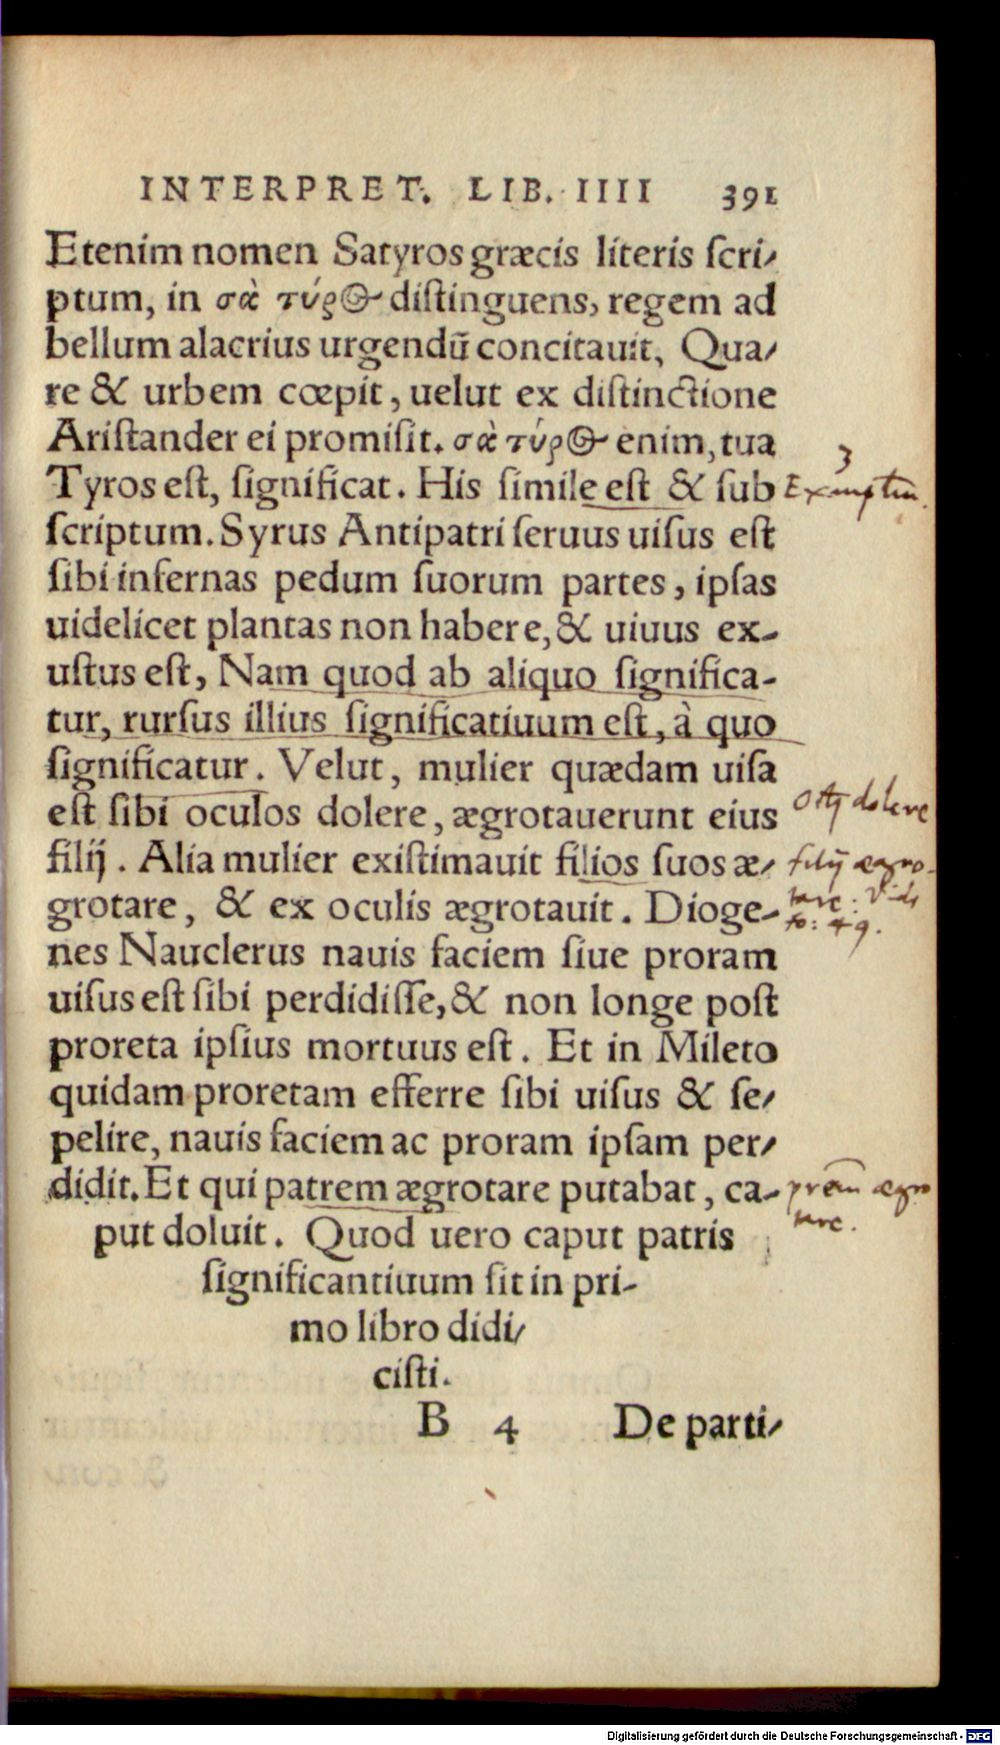 INTERPRET. LIB. IIII 391
Etenim nomen Satyros græcis literis ſcri-
ptum, in σὰ τύρος diſtinguens, regem ad
bellum alacrius urgendū concitauit, Qua-
re & urbem cœpit, uelut ex diſtinctione
Ariſtander ei promiſit. σὰ τύρος enim, tua
Tyros eſt, ſignificat. His ſimile eſt & ſub
ſcriptum. Syrus Antipatri ſeruus uiſus eſt
ſibi infernas pedum ſuorum partes, ipſas
uidelicet plantas non habere, & uiuus ex-
uſtus eſt, Nam quod ab aliquo ſignifica-
tur, rurſus illius ſignificatiuum eſt, à quo
ſignificatur. Velut, mulier quædam uiſa
eſt ſibi oculos dolere, ægrotauerunt eius
filij. Alia mulier exiſtimauit filios ſuos æ-
grotare, & ex oculis ægrotauit. Dioge-
nes Nauclerus nauis faciem ſiue proram
uiſus eſt ſibi perdidiſſe, & non longe poſt
proreta ipſius mortuus eſt. Et in Mileto
quidam proretam efferre ſibi uiſus & ſe-
pelire, nauis faciem ac proram ipſam per-
didit. Et qui patrem ægrotare putabat, ca-
put doluit. Quod uero caput patris
ſignificantiuum ſit in pri-
mo libro didi-
ciſti.
B 4 De parti-
3
dolere
filij ægro-
tare: Vide
fo: 49.
prēm ægro
tare.
Digitalisierung gefördert durch die Deutsche Forschungsgemeinschaft - DFG